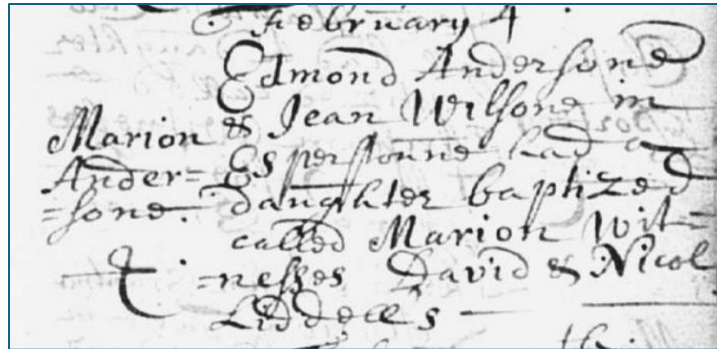 February 4
Edmond Andersone
& Jean Wilsone in
Esperstoune had a
daughter baptized
called Marion Wit=
=nesses David & Nicol
Liddells
Marion
Ander=
=sone.